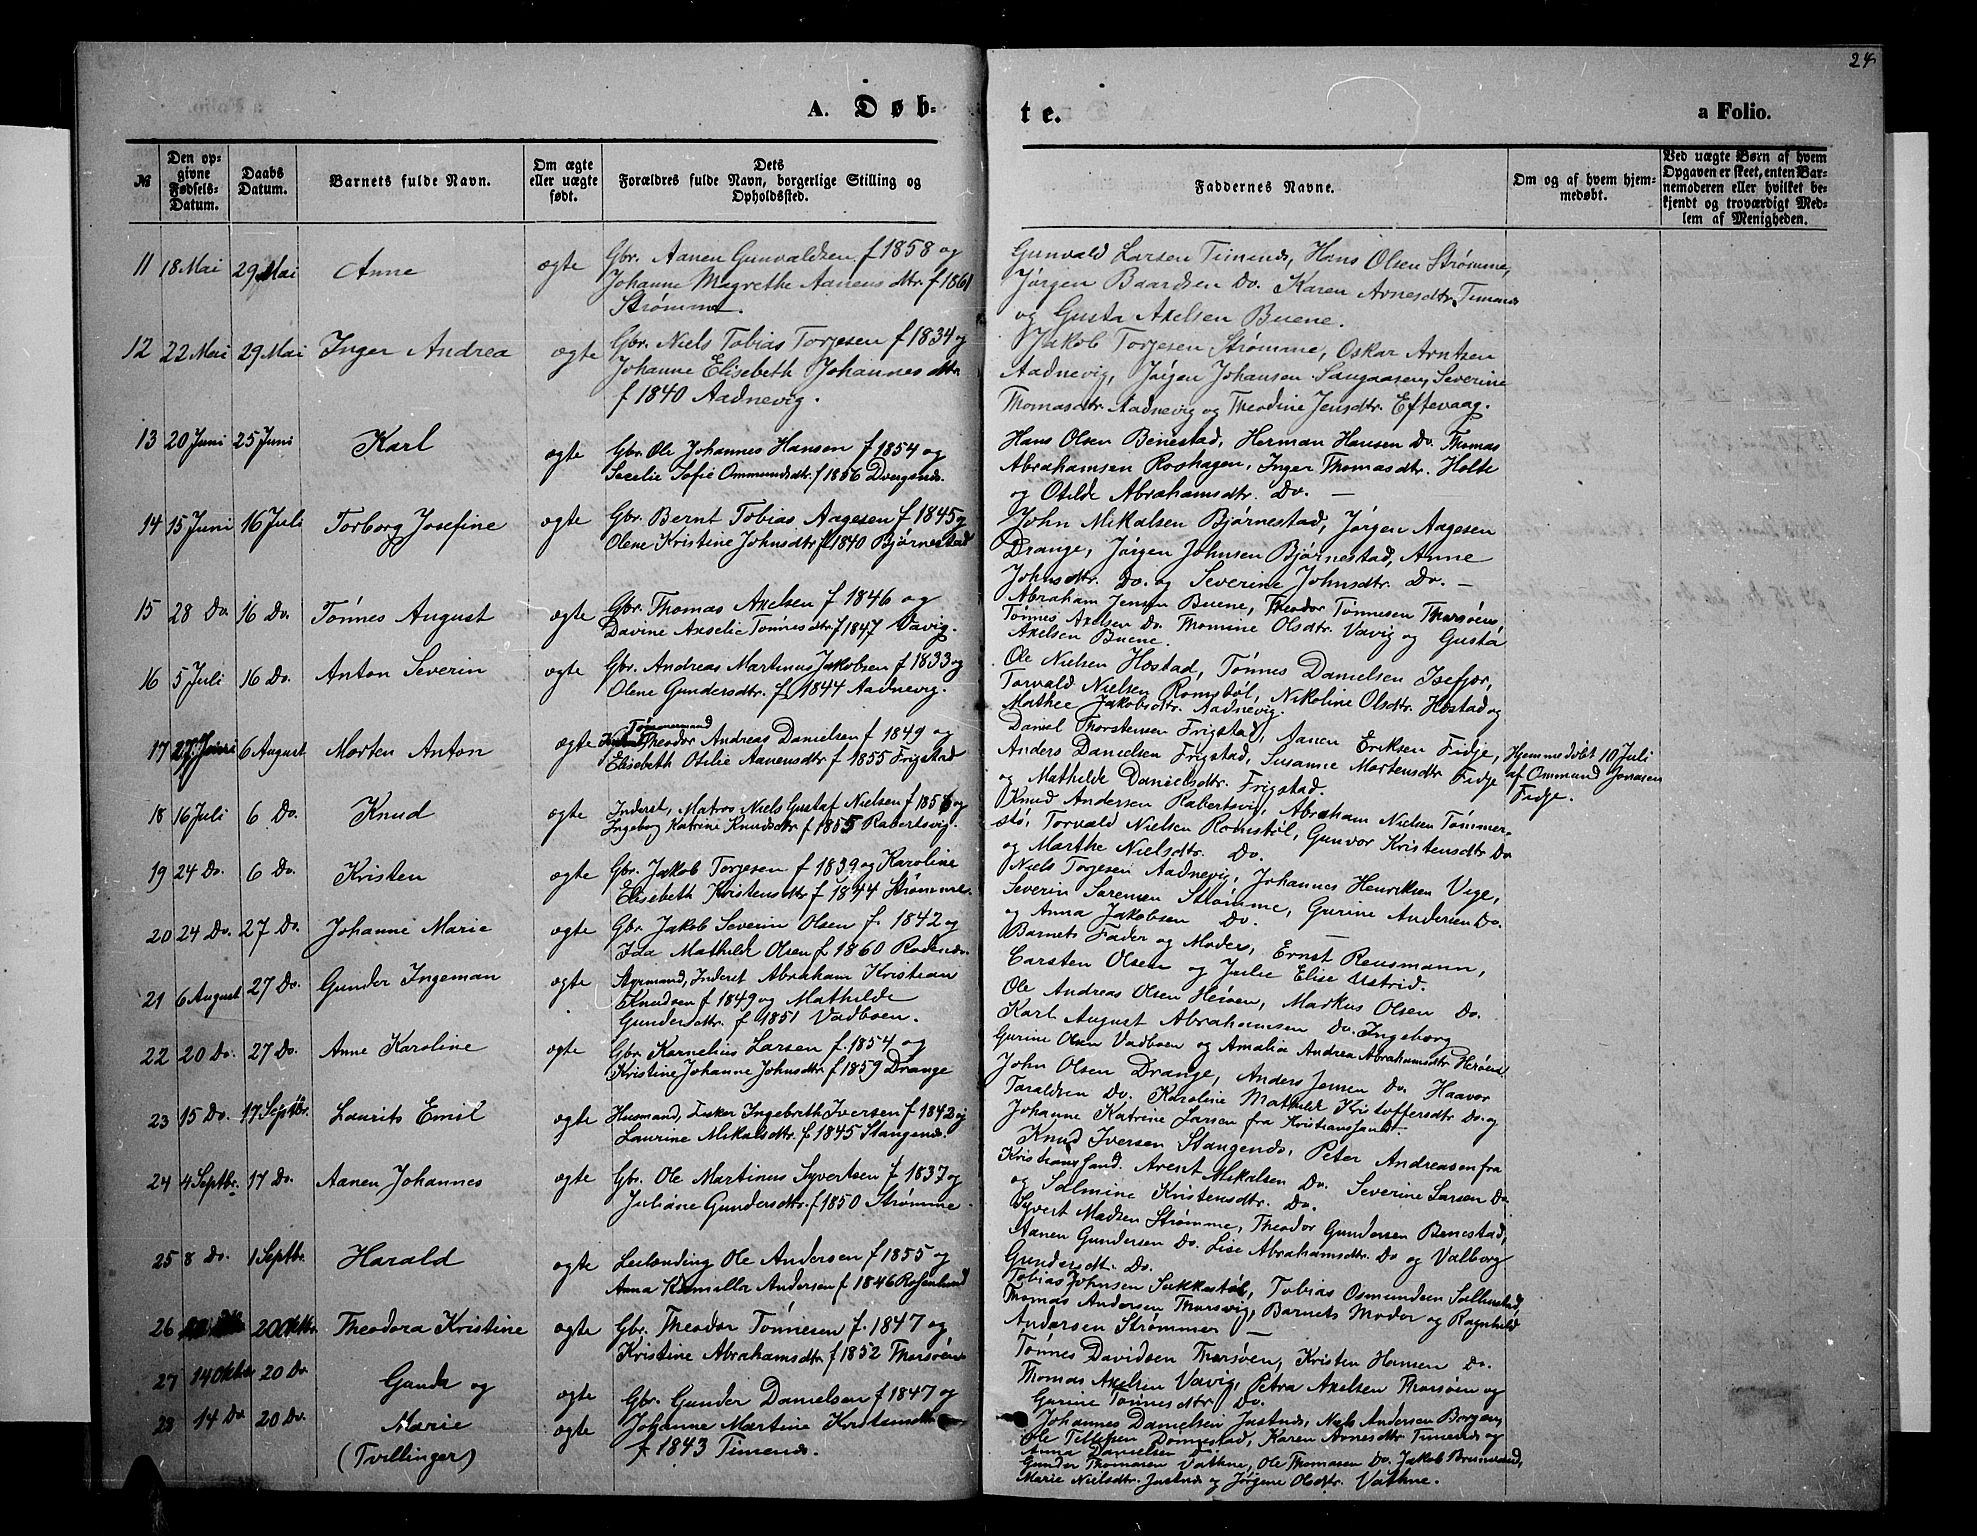 24
A. Døb-
te.
a Folio.
№
Den op-
givne
Fødsels-
Datum.
Daabs
Datum.
Barnets fulde Navn.
Om ægte
eller uægte
født.
Dets
Forældres fulde Navn, borgerlige Stilling og
Opholdssted.
Faddernes Navne.
Om og af hvem hjem-
medøbt.
Ved uægte Børn af hvem
Opgaven er skeet, enten Bar-
nemoderen eller hvilket be-
kjendt og troværdigt Med-
lem af Menigheden.
11 18 Mai 29 Mai Anne ægte Gbr. Aanen Gunvaldsen f 1858 og
Johanne Magrethe Aanensdtr f 1861
Strømme.
Gunvald Larsen Timenes, Hans Olsen Strømme,
Jørgen Baardsen Do. Karen Arnesdtr. Timenes
og Gusta Axelsen Buene.
12 22 Mai 29 Mai Inger Andrea ægte Gbr. Niels Tobias Torjesen f 1834 og
Johanne Elisebeth Johannesdtr
f 1840 Aadnevig.
Jakob Torjesen Strømme, Oskar Arntsen
Aadnevig, Jørgen Johansen Saugaasen, Severine
Thomasdtr. Aadnevig og Theodine Jensdtr. Eftevaag.
13 20 Juni 25 Juni Karl ægte Gbr. Ole Johannes Hansen f 1854 og
Secelie Sofie Ommundsdtr. f 1856 Dvergsnes.
Hans Olsen Benestad, Herman Hansen Do. Thomas
Abrahamsen Roshagen, Inger Thomasdtr. Holte
og Otilde Abrahamsdtr. Do. —
14 15 Juni 16 Juli Torborg Josefine ægte Gbr. Bernt Tobias Aagesen f 1845 og
Olene Kristine Johnsdtr f 1840 Bjørnestad
John Mikalsen Bjørnestad, Jørgen Aagesen
Drange, Jørgen Johnsen Bjørnestad, Anne
Johnsdtr. Do. og Severine Johnsdtr. Do. —
15 28 Do. 16 Do. Tønnes August ægte Gbr. Thomas Axelsen f 1846 og
Davine Axselie Tønnesdtr. f 1847 Vavig.
Abraham Jensen Buene, Theodor Tønnesen Thorsøen,
Tønnes Axelsen Do. Thomine Olsdtr. Vavig og Gusta
Axelsen Buene.
16 5 Juli 16 Do. Anton Severin ægte Gbr. Andreas Martinus Jakobsen f 1833 og
Olene Gundersdtr. f 1844 Aadnevig.
Ole Nielsen Høstad, Tønnes Danielsen Isefjør,
Torvald Nielsen Romstøl, Nikoline Olsdtr. Høstad og
Mathee Jakobsdtr. Aadnevig.
17 27 Juni 6 August Morten Anton ægte Tømmermand
Theodor Andreas Danielsen f 1849 og
Elisebeth Otilie Aanensdtr f 1855 Frigstad
Daniel Thorstensen Frigstad, Aanen Eriksen Fidje,
Anders Danielsen Frigstad, Susanne Mortensdtr Fidje
og Mathilde Danielsdtr. Frigstad.
Hjemmedøbt 10 Juli
af Ommund Jonasen
Fidje.
18 16 Juli 6 Do. Knud ægte Inderst, Matros Niels Gustaf Nielsen f 1856 og
Ingeborg Katrine Knudsdtr f 1855 Rabertsvig.
Knud Andersen Rabertsvig, Abraham Nielsen Tømmer-
stø, Torvald Nielsen Romstøl, Gunvor Kristensdtr Do
og Marthe Nielsdtr. Do.
19 24 Do. 6 Do. Kristen ægte Gbr. Jakob Torjesen f 1839 og Karoline
Elisebeth Kristensdtr f 1844 Strømme.
Niels Torjesen Aadnevig, Johannes Henriksen Vige,
Severin Sørensen Strømme, Gurine Andersen Do.
og Anna Jakobsen Do.
20 24 Do. 27 Do. Johanne Marie ægte Gbr. Jakob Severin Olsen f. 1842 og
Ida Mathilde Olsen f 1860 Rodenæs.
Barnets Fader og Moder, Ernst Reusmann,
Carsten Olsen og Julie Elise Ustrid.
21 6 August 27 Do. Gunder Ingeman ægte Styrmand, Inderst Abraham Kristian
Knudsen f 1849 og Mathilde
Gundersdtr. f 1851 Vadboen.
Ole Andreas Olsen Herøen, Markus Olsen Do.
Karl August Abrahamsen Do. Ingeborg
Gurine Olsen Vadboen og Amalia Andrea Abrahamsdtr Herøen
22 20 Do. 27 Do. Anne Karoline ægte Gbr Kornelius Larsen f. 1854 og
Kristine Johanne Johnsdtr f 1859 Drange
John Olsen Drange, Anders Jensen Do. Haavor
Taraldsen Do. Karoline Mathilde Kristoffersdtr Do. og
Johanne Katrine Larsen fra Kristianssand.
23 15 Do. 17 Septbr. Laurits Emil ægte Husmand, Fisker Ingebreth Iversen f 1842 og
Laurine Mikalsdtr. f 1845 Stangenes.
Knud Iversen Stangenes, Peter Andreasen fra
Kristianssand. Arent Mikalsen Do. Severine Larsen Do.
og Salmine Kristensdtr. Do.
24 4 Septbr. 17 Do. Aanen Johannes ægte Gbr. Ole Martinus Syvertsen f 1837 og
Juliane Gundersdtr. f 1850 Strømme.
Syvert Madsen Strømme, Theodor Gundersen Benestad,
Aanen Gundersen Do. Lise Abrahamsdtr. Do og Valborg
Gundersdt. Do.
25 8 Do. 1 Septbr. Harald ægte Leilænding Ole Andersen f 1855 og
Anna Kamilla Andersen f 1846 Rosenlund
Tobias Johnsen Sukkestøl, Tobias Osmundsen
Thomas Andersen Thorsvig, Barnets Moder og Ragnhild
Andersen Strømme —
26 20 Oktbr. Theodora Kristine ægte Gbr. Theodor Tønnesen f. 1847 og
Kristine Abrahamsdtr f 1852 Thorsøen
Tønnes Davidsen Thorsøen, Kristen Hansen Do.
Thomas Axelsen Vavig, Petra Axelsen Thorsøen og
Gurine Tønnesdtr Do.
27 14 Oktbr 20 Do Gunda og ægte Gbr. Gunder Danielsen f 1847 og
28 14 Do 20 Do. Marie ægte Johanne Martine Kristensdtr
(Tvillinger) f 1843 Timenes.
Johannes Danielsen Justnes, Niels Andersen Borgen,
Ole Tellefsen Dønnestad, Karen Arnesdtr Timenes og
Anna Danielsen Do.
Gunder Thomasen Vathne, Ole Thomasen Do. Jakob Brunvand,
Marie Nielsdtr. Justnes og Jørgine Olsdtr. Vathne.